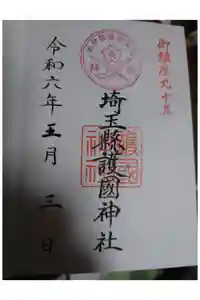 御鎮座九十年
埼玉縣護國神社
令和六年五月三日